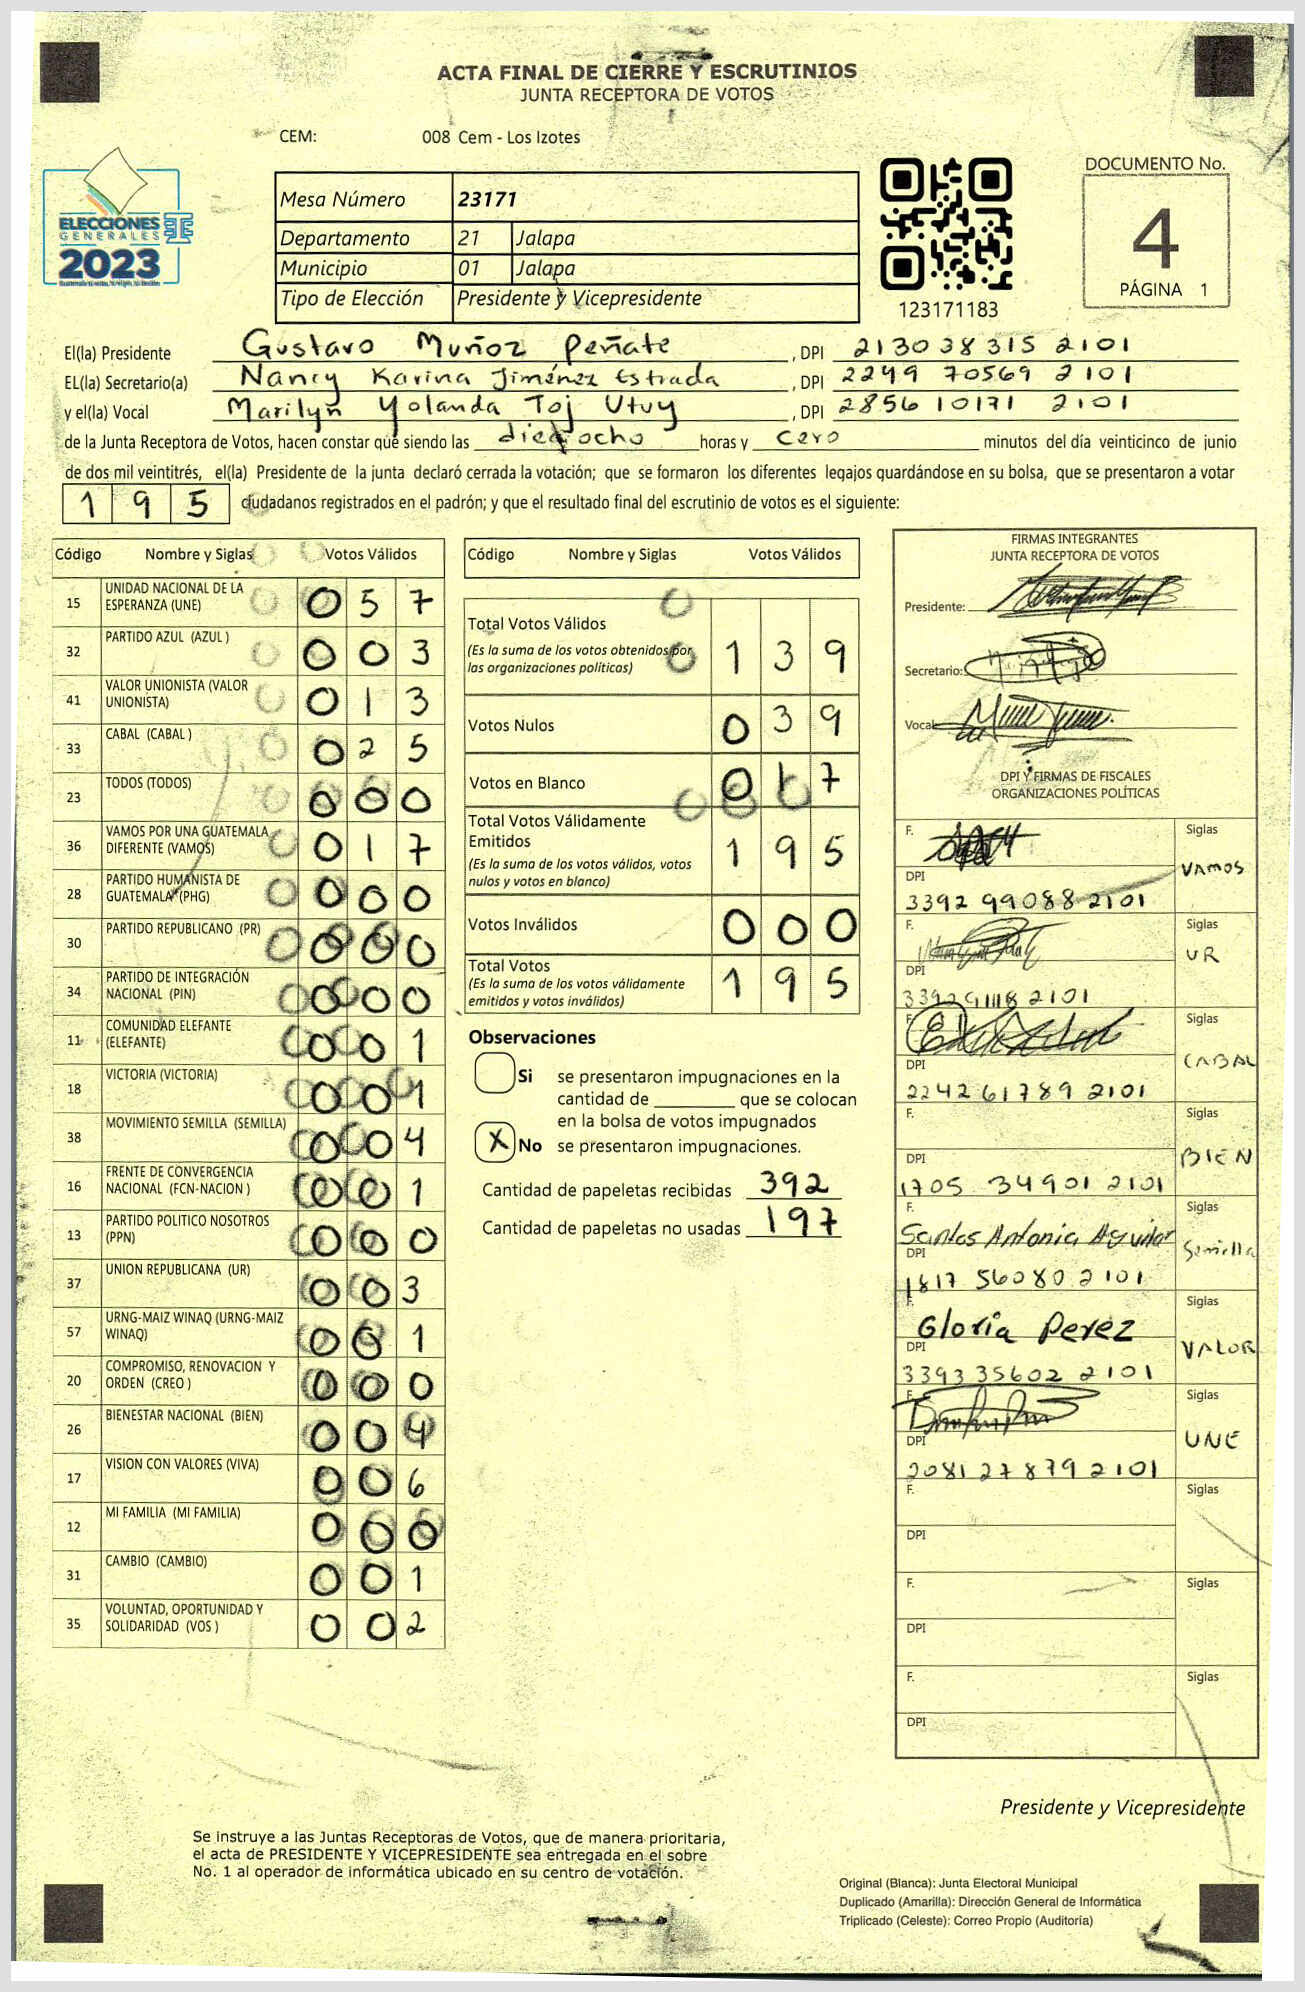 ACTA FINAL DE CIERRE Y ESCRUTINIOS
JUNTA RECEPTORA DE VOTOS
CEM: 008 Cem - Los Izotes
ELECCIONES
GENERALES
2023
Mesa Número 23171
Departamento 21 Jalapa
Municipio 01 Jalapa
Tipo de Elección Presidente y Vicepresidente
123171183
DOCUMENTO No.
4
PÁGINA 1
El(la) Presidente Gustavo Muñoz Peñate , DPI 213038315 2101
EL(la) Secretario(a) Nancy Karina Jiménez Estrada , DPI 2249 70569 2101
y el(la) Vocal Marilyn Yolanda Toj Utuy , DPI 2856 10171 2101
de la Junta Receptora de Votos, hacen constar que siendo las dieciocho horas y cero minutos del día veinticinco de junio
de dos mil veintitrés, el(la) Presidente de la junta declaró cerrada la votación; que se formaron los diferentes legajos quardándose en su bolsa, que se presentaron a votar
195 ciudadanos registrados en el padrón; y que el resultado final del escrutinio de votos es el siguiente:
Código Nombre y Siglas Votos Válidos
15 UNIDAD NACIONAL DE LA
ESPERANZA (UNE) 057
32 PARTIDO AZUL (AZUL ) 003
41 VALOR UNIONISTA (VALOR
UNIONISTA) 013
33 CABAL (CABAL ) 025
23 TODOS (TODOS) 000
36 VAMOS POR UNA GUATEMALA
DIFERENTE (VAMOS) 017
28 PARTIDO HUMANISTA DE
GUATEMALA (PHG) 000
30 PARTIDO REPUBLICANO (PR) 000
34 PARTIDO DE INTEGRACIÓN
NACIONAL (PIN) 000
11 COMUNIDAD ELEFANTE
(ELEFANTE) 001
18 VICTORIA (VICTORIA) 001
38 MOVIMIENTO SEMILLA (SEMILLA) 004
16 FRENTE DE CONVERGENCIA
NACIONAL (FCN-NACION ) 001
13 PARTIDO POLITICO NOSOTROS
(PPN) 000
37 UNION REPUBLICANA (UR) 003
57 URNG-MAIZ WINAQ (URNG-MAIZ
WINAQ) 001
20 COMPROMISO, RENOVACION Y
ORDEN (CREO ) 000
26 BIENESTAR NACIONAL (BIEN) 004
17 VISION CON VALORES (VIVA) 006
12 MI FAMILIA (MI FAMILIA) 000
31 CAMBIO (CAMBIO) 001
35 VOLUNTAD, OPORTUNIDAD Y
SOLIDARIDAD (VOS ) 002
Código Nombre y Siglas Votos Válidos
Total Votos Válidos
(Es la suma de los votos obtenidos por
las organizaciones políticas) 139
Votos Nulos 039
Votos en Blanco 017
Total Votos Válidamente
Emitidos
(Es la suma de los votos válidos, votos
nulos y votos en blanco) 195
Votos Inválidos 000
Total Votos
(Es la suma de los votos válidamente
emitidos y votos inválidos) 195
Observaciones
Si se presentaron impugnaciones en la
cantidad de ________ que se colocan
en la bolsa de votos impugnados
X No se presentaron impugnaciones.
Cantidad de papeletas recibidas 392
Cantidad de papeletas no usadas 197
FIRMAS INTEGRANTES
JUNTA RECEPTORA DE VOTOS
Presidente:
Secretario:
Vocal:
DPI Y FIRMAS DE FISCALES
ORGANIZACIONES POLÍTICAS
F. Siglas
VAMOS
DPI
3392 99088 2101
F. Siglas
UR
DPI
339291118 2101
F. Siglas
CABAL
DPI
2242 61789 2101
F. Siglas
BIEN
DPI
1705 34901 2101
F. Siglas
Santos Antonia Aguilar Semilla
DPI
1817 56080 2101
F. Siglas
Gloria Perez VALOR
DPI
3393 35602 2101
F. Siglas
UNE
DPI
2081 27879 2101
F. Siglas
DPI
F. Siglas
DPI
F. Siglas
DPI
Presidente y Vicepresidente
Se instruye a las Juntas Receptoras de Votos, que de manera prioritaria,
el acta de PRESIDENTE Y VICEPRESIDENTE sea entregada en el sobre
No. 1 al operador de informática ubicado en su centro de votación.
Original (Blanca): Junta Electoral Municipal
Duplicado (Amarilla): Dirección General de Informática
Triplicado (Celeste): Correo Propio (Auditoría)